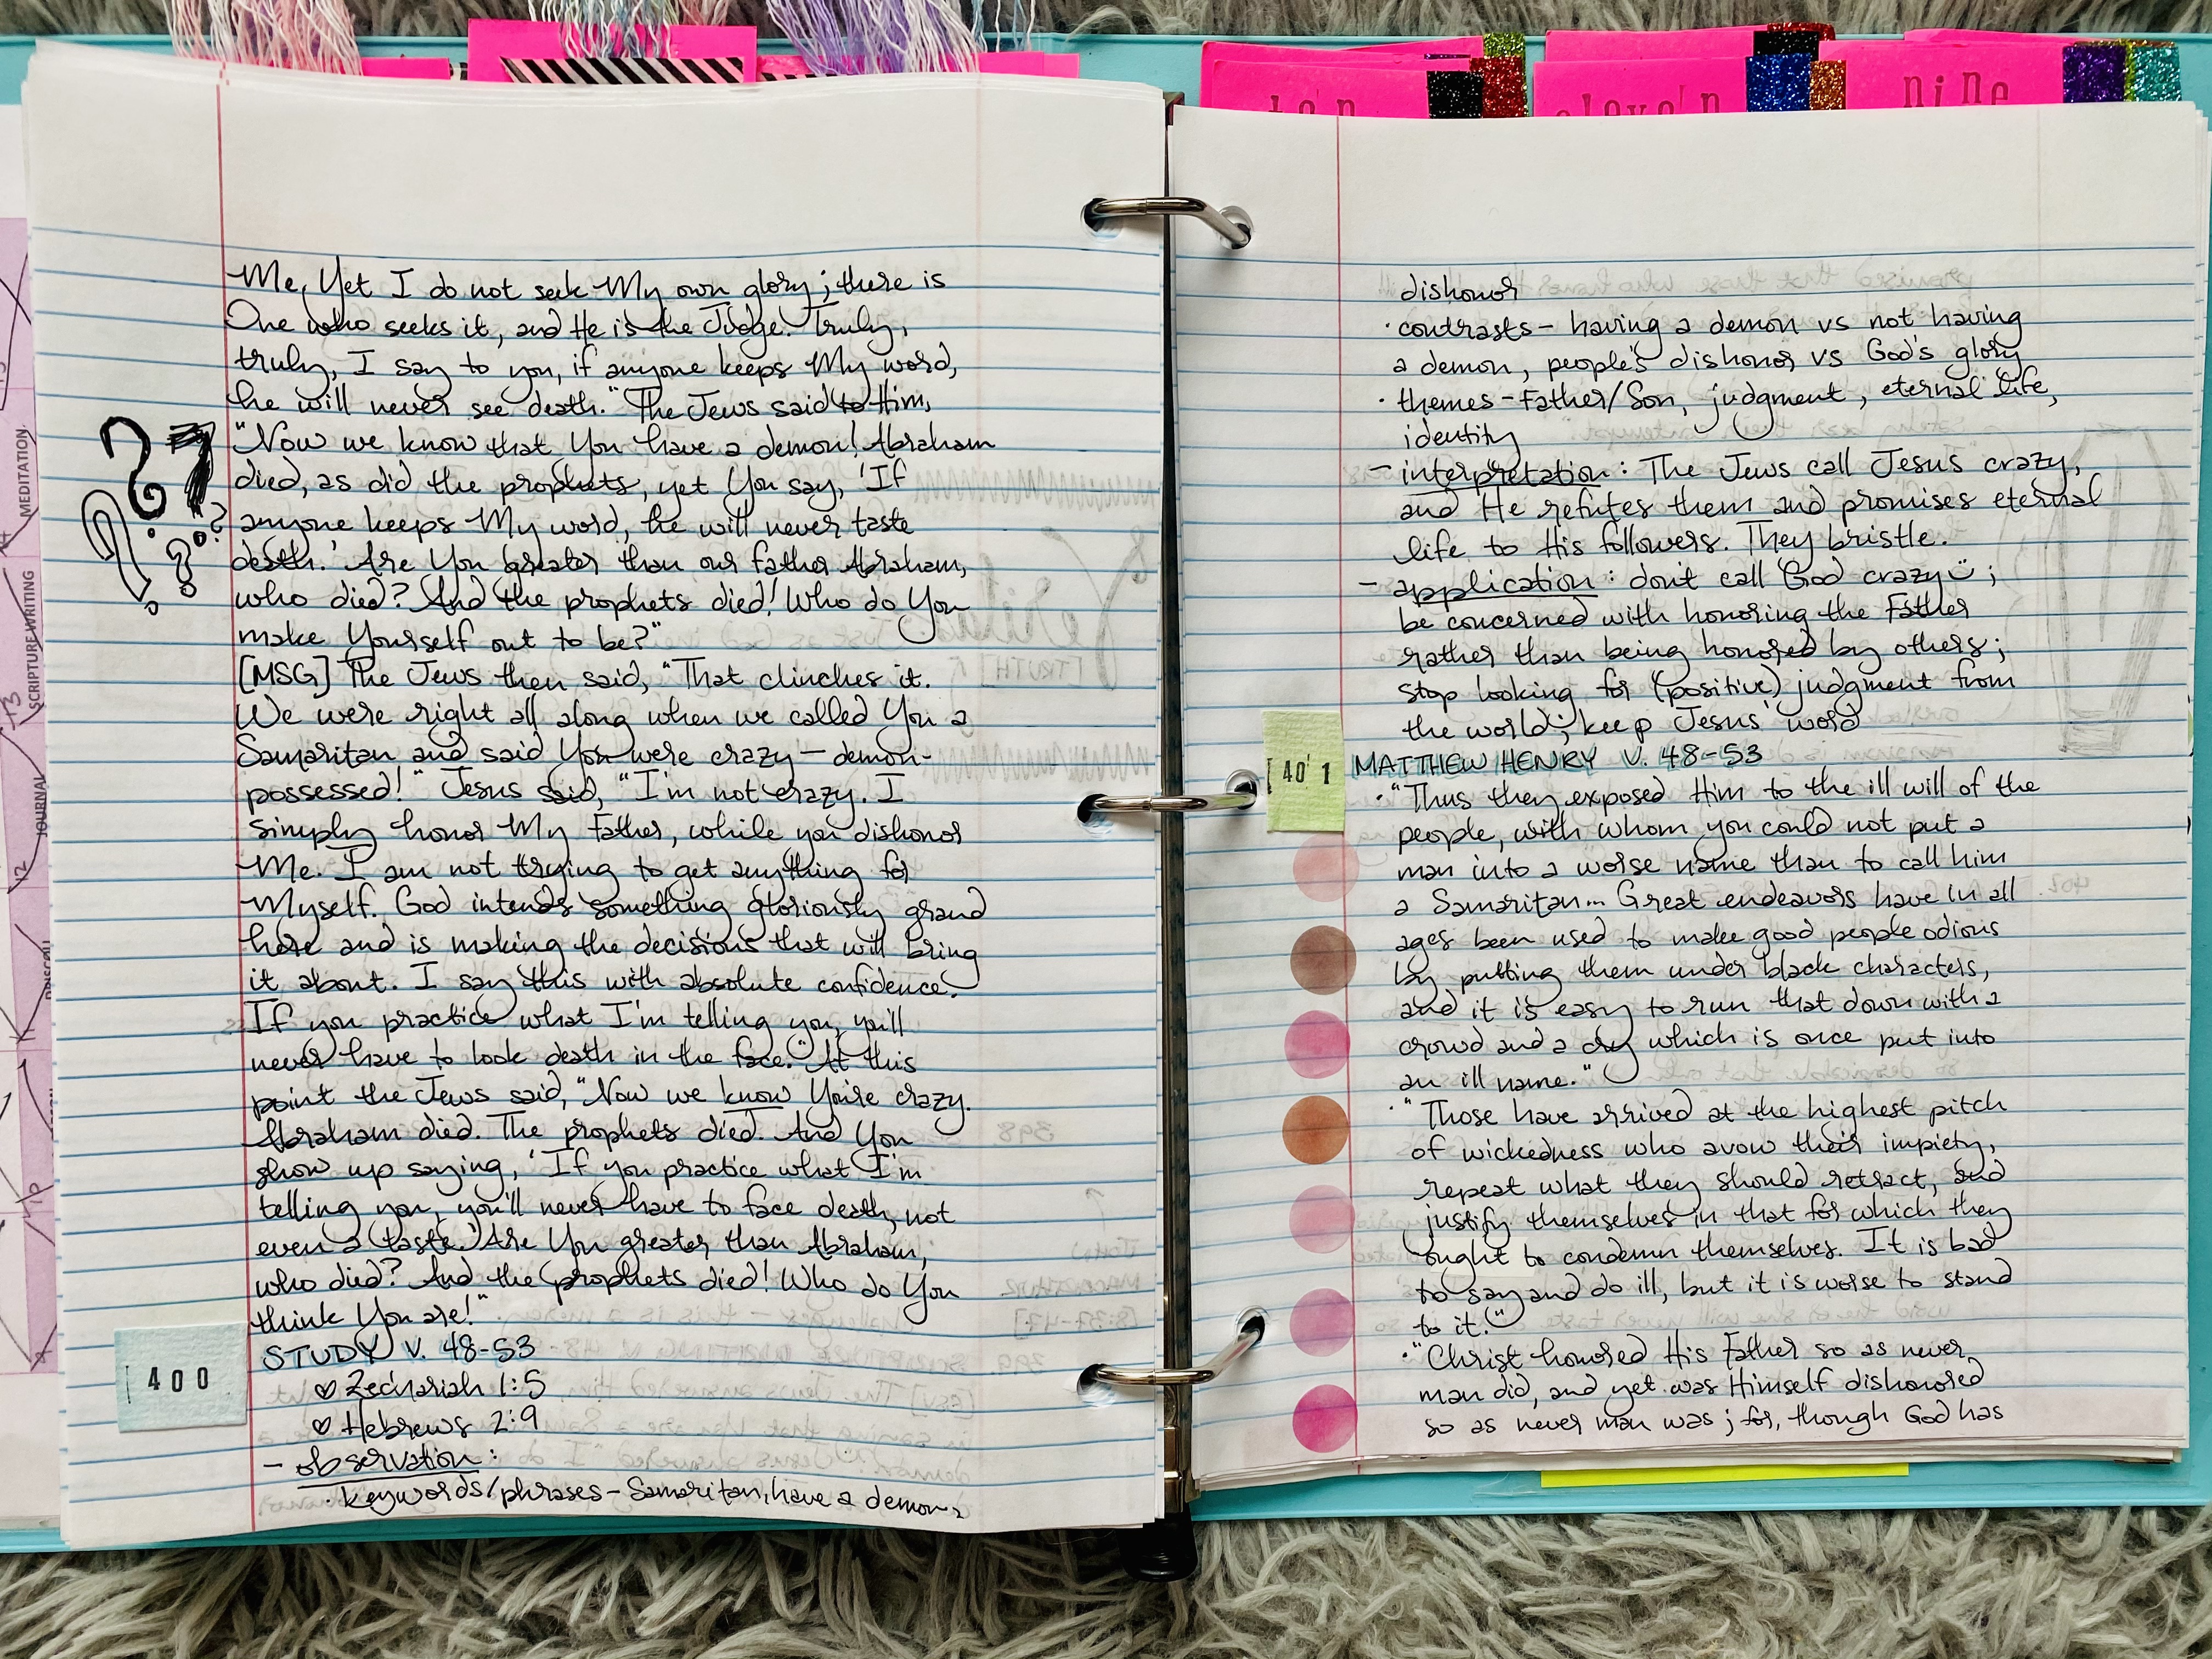 te'n
eleve'n
nine
MEDITATION
SCRIPTURE WRITING
JOURNAL
Me, Yet I do not seek My own glory; there is
One who seeks it, and He is the Judge. Truly,
truly, I say to you, if anyone keeps My word,
he will never see death." The Jews said to Him,
"Now we know that You have a demon! Abraham
died, as did the prophets, yet You say, 'If
anyone keeps My word, he will never taste
death.' Are You greater than our father Abraham,
who died? And the prophets died! Who do You
make Yourself out to be?"
[MSG] The Jews then said, "That clinches it.
We were right all along when we called You a
Samaritan and said You were crazy — demon-
possessed!" Jesus said, "I'm not crazy. I
simply honor My Father, while you dishonor
Me. I am not trying to get anything for
Myself. God intends something gloriously grand
here and is making the decisions that will bring
it about. I say this with absolute confidence.
If you practice what I'm telling you, you'll
never have to look death in the face." At this
point the Jews said, "Now we know You're crazy.
Abraham died. The prophets died. And You
show up saying, 'If you practice what I'm
telling you, you'll never have to face death, not
even a taste.' Are You greater than Abraham,
who died? And the prophets died! Who do You
think You are!"
STUDY V. 48-53
♡ Zechariah 1:5
♡ Hebrews 2:9
- observation:
· keywords/phrases - Samaritan, have a demon,
400
dishonor
· contrasts - having a demon vs not having
a demon, people's dishonor vs God's glory
· themes - Father/Son, judgment, eternal life,
identity
- interpretation: The Jews call Jesus crazy,
and He refutes them and promises eternal
life to His followers. They bristle.
- application: don't call God crazy ; 
be concerned with honoring the Father
rather than being honored by others;
stop looking for (positive) judgment from
the world; keep Jesus' word
40'1
MATTHEW HENRY V. 48-53
· "Thus they exposed Him to the ill will of the
people, with whom you could not put a
man into a worse name than to call him
a Samaritan... Great endeavors have in all
ages been used to make good people odious
by putting them under black characters,
and it is easy to run that down with a
crowd and a cry which is once put into
an ill name."
· "Those have arrived at the highest pitch
of wickedness who avow their impiety,
repeat what they should retract, and
justify themselves in that for which they
ought to condemn themselves. It is bad
to say and do ill, but it is worse to stand
to it."
· "Christ honored His Father so as never
man did, and yet was Himself dishonored
so as never man was; for, though God has